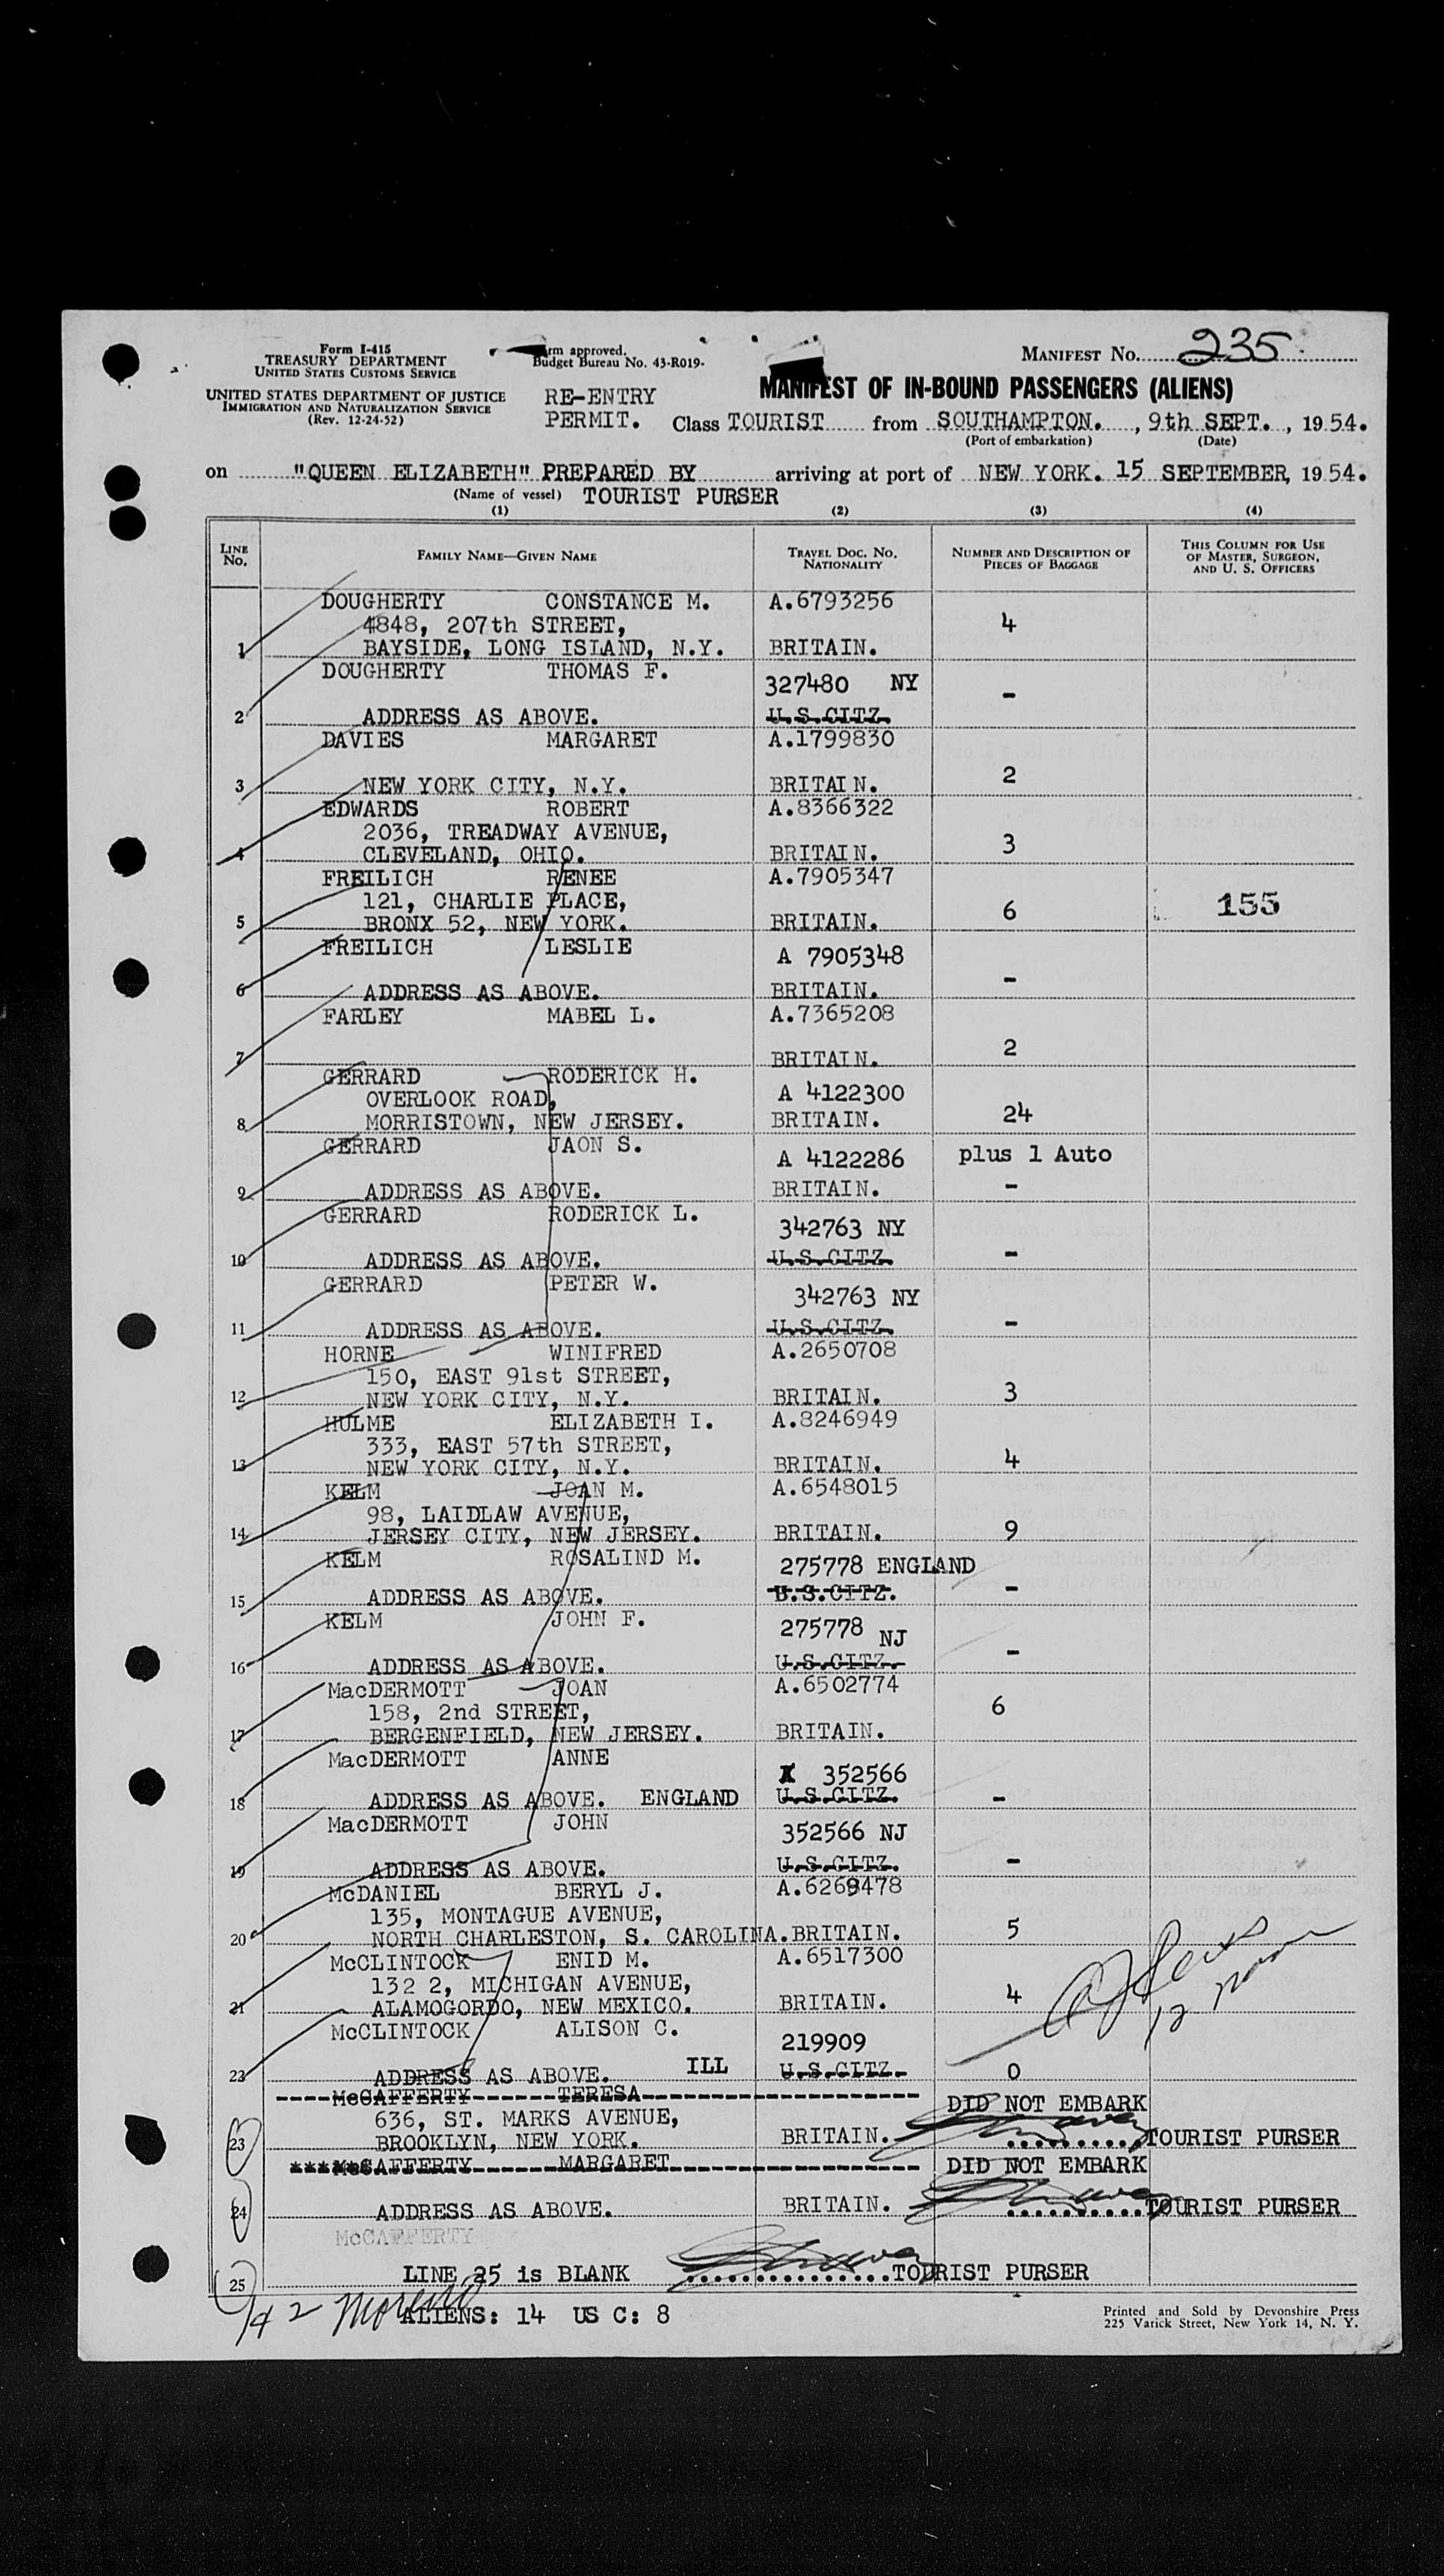 Form I-415
TREASURY DEPARTMENT
UNITED STATES CUSTOMS SERVICE
UNITED STATES DEPARTMENT OF JUSTICE
IMMIGRATION AND NATURALIZATION SERVICE
(Rev. 12-24-52)
rm approved.
Budget Bureau No. 43-R019.
RE-ENTRY
PERMIT.
MANIFEST NO. 235
MANIFEST OF IN-BOUND PASSENGERS (ALIENS)
Class TOURIST from SOUTHAMPTON. , 9th SEPT. , 1954.
(Port of embarkation) (Date)
on "QUEEN ELIZABETH" PREPARED BY arriving at port of NEW YORK. 15 SEPTEMBER, 1954.
(Name of vessel) TOURIST PURSER
(1) (2) (3) (4)
LINE NO. FAMILY NAME—GIVEN NAME TRAVEL DOC. NO. NATIONALITY NUMBER AND DESCRIPTION OF PIECES OF BAGGAGE THIS COLUMN FOR USE OF MASTER, SURGEON, AND U. S. OFFICERS
DOUGHERTY CONSTANCE M. A.6793256
4848, 207th STREET, 4
1 BAYSIDE, LONG ISLAND, N.Y. BRITAIN.
DOUGHERTY THOMAS F. 327480 NY -
2 ADDRESS AS ABOVE. U.S.CITZ.
DAVIES MARGARET A.1799830
3 NEW YORK CITY, N.Y. BRITAIN. 2
EDWARDS ROBERT A.8366322
2036, TREADWAY AVENUE, 3
4 CLEVELAND, OHIO. BRITAIN.
FREILICH RENEE A.7905347
121, CHARLIE PLACE, 6 155
5 BRONX 52, NEW YORK. BRITAIN.
FREILICH LESLIE A 7905348 -
6 ADDRESS AS ABOVE. BRITAIN.
FARLEY MABEL L. A.7365208
7 BRITAIN. 2
GERRARD RODERICK H. A 4122300
OVERLOOK ROAD,
8 MORRISTOWN, NEW JERSEY. BRITAIN. 24
GERRARD JAON S. A 4122286 plus 1 Auto
9 ADDRESS AS ABOVE. BRITAIN. -
GERRARD RODERICK L. 342763 NY
10 ADDRESS AS ABOVE. U.S.CITZ. -
GERRARD PETER W. 342763 NY
11 ADDRESS AS ABOVE. U.S.CITZ. -
HORNE WINIFRED A.2650708
150, EAST 91st STREET,
12 NEW YORK CITY, N.Y. BRITAIN. 3
HULME ELIZABETH I. A.8246949
333, EAST 57th STREET,
13 NEW YORK CITY, N.Y. BRITAIN. 4
KELM JOAN M. A.6548015
98, LAIDLAW AVENUE,
14 JERSEY CITY, NEW JERSEY. BRITAIN. 9
KELM ROSALIND M. 275778 ENGLAND
15 ADDRESS AS ABOVE. U.S.CITZ. -
KELM JOHN F. 275778 NJ
16 ADDRESS AS ABOVE. U.S.CITZ. -
MacDERMOTT JOAN A.6502774
158, 2nd STREET, 6
17 BERGENFIELD, NEW JERSEY. BRITAIN.
MacDERMOTT ANNE X 352566
18 ADDRESS AS ABOVE. ENGLAND U.S.CITZ. -
MacDERMOTT JOHN 352566 NJ
19 ADDRESS AS ABOVE. U.S.CITZ. -
McDANIEL BERYL J. A.6269478
135, MONTAGUE AVENUE,
20 NORTH CHARLESTON, S. CAROLINA. BRITAIN. 5
McCLINTOCK ENID M. A.6517300
132 2, MICHIGAN AVENUE,
21 ALAMOGORDO, NEW MEXICO. BRITAIN. 4
12
McCLINTOCK ALISON C. 219909
22 ADDRESS AS ABOVE. ILL U.S.CITZ. 0
McCAFFERTY TERESA DID NOT EMBARK
636, ST. MARKS AVENUE,
23 BROOKLYN, NEW YORK. BRITAIN. TOURIST PURSER
McCAFFERTY MARGARET DID NOT EMBARK
24 ADDRESS AS ABOVE. BRITAIN. TOURIST PURSER
McCAFFERTY
25 LINE 25 is BLANK TOURIST PURSER
ALIENS: 14 US C: 8
Printed and Sold by Devonshire Press
225 Varick Street, New York 14, N. Y.